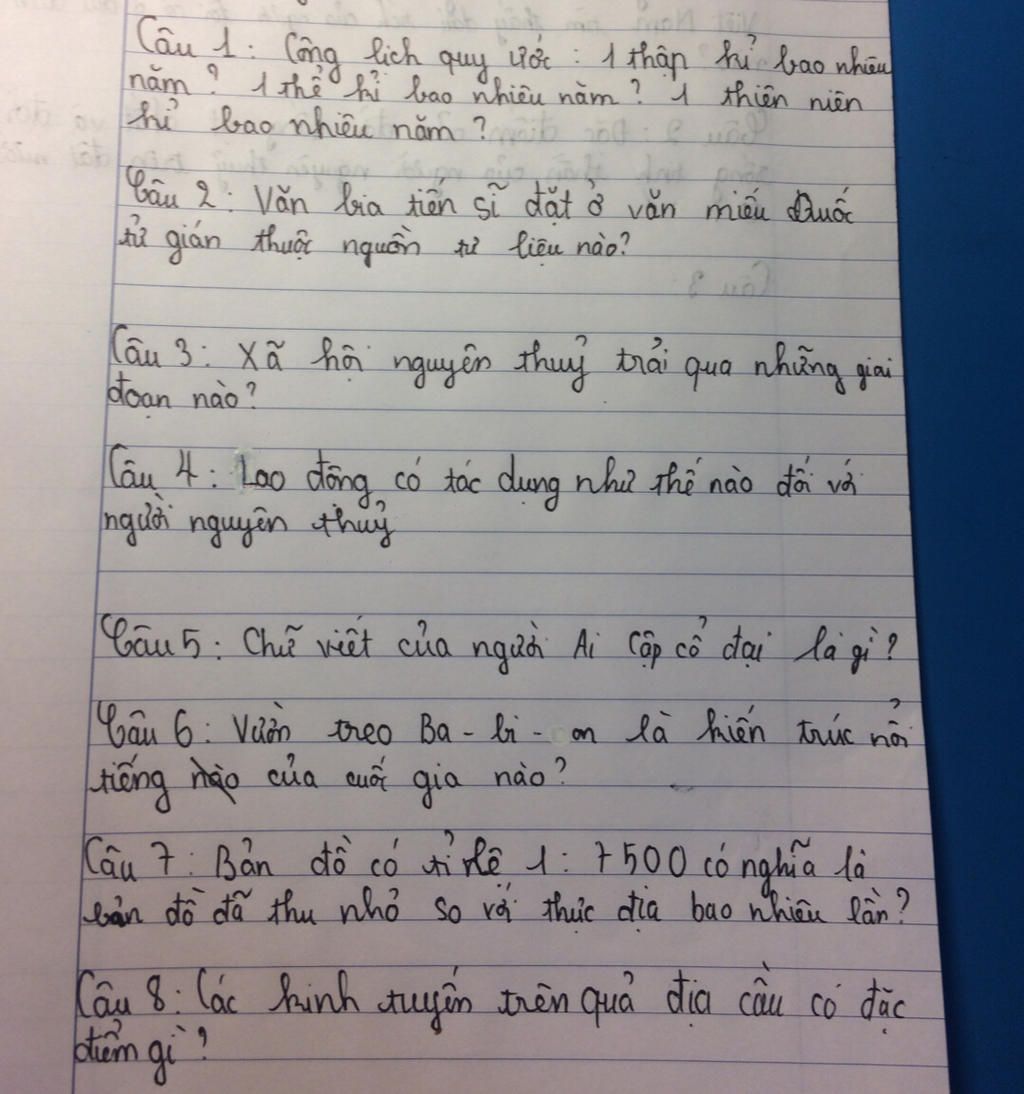 Câu 1: Công lịch quy ước: 1 thập kỉ bao nhiêu
năm? 1 thế kỉ bao nhiêu năm? 1 thiên niên
kỉ bao nhiêu năm?
Câu 2: Văn bia tiến sĩ đặt ở văn miếu Quốc
tử gián thuộc nguồn tư liệu nào?
Câu 3: Xã hội nguyên thuỷ trải qua những giai
đoạn nào?
Câu 4: Lao động có tác dụng như thế nào đối với
người nguyên thuỷ
Câu 5: Chữ viết của người Ai Cập cổ đại là gì?
Câu 6: Vườn treo Ba-bi-on là kiến trúc nổi
tiếng của cuốc gia nào?
Câu 7: Bản đồ có tỉ lệ 1: 7500 có nghĩa là
bản đồ đã thu nhỏ so với thực địa bao nhiêu lần?
Câu 8: Các kinh tuyến trên quả địa cầu có đặc
điểm gì?